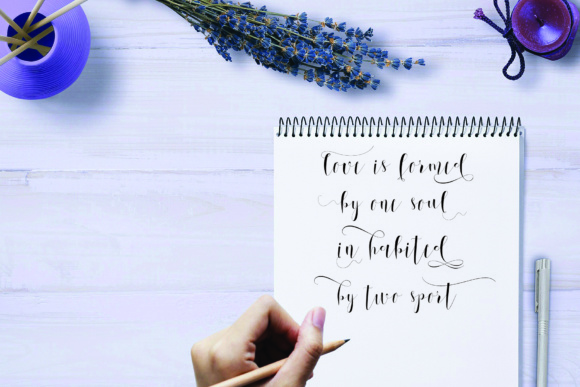 love is formed
by one soul
in habited
by two sport